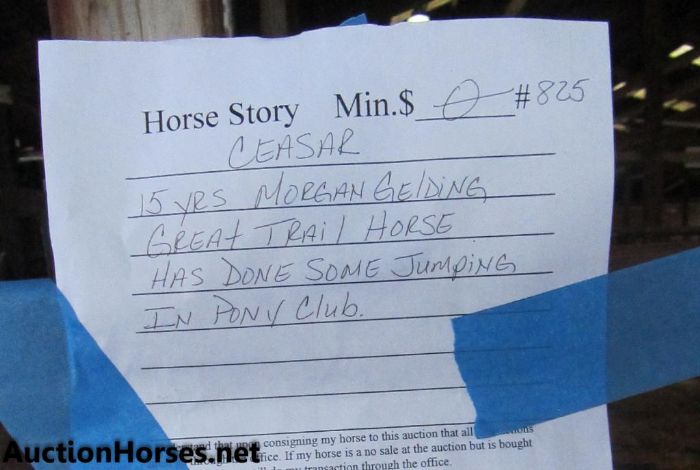 Horse Story Min.$ 0 #825
CEASAR
15 yRS MORGAN GElDING
GREAt TRAIl HORSE
HAS DONE SOME JumpiNG
IN PONY Club.
that upon consigning my horse to this auction that all
office. If my horse is a no sale at the auction but is bought
transaction through the office.
AuctionHorses.net